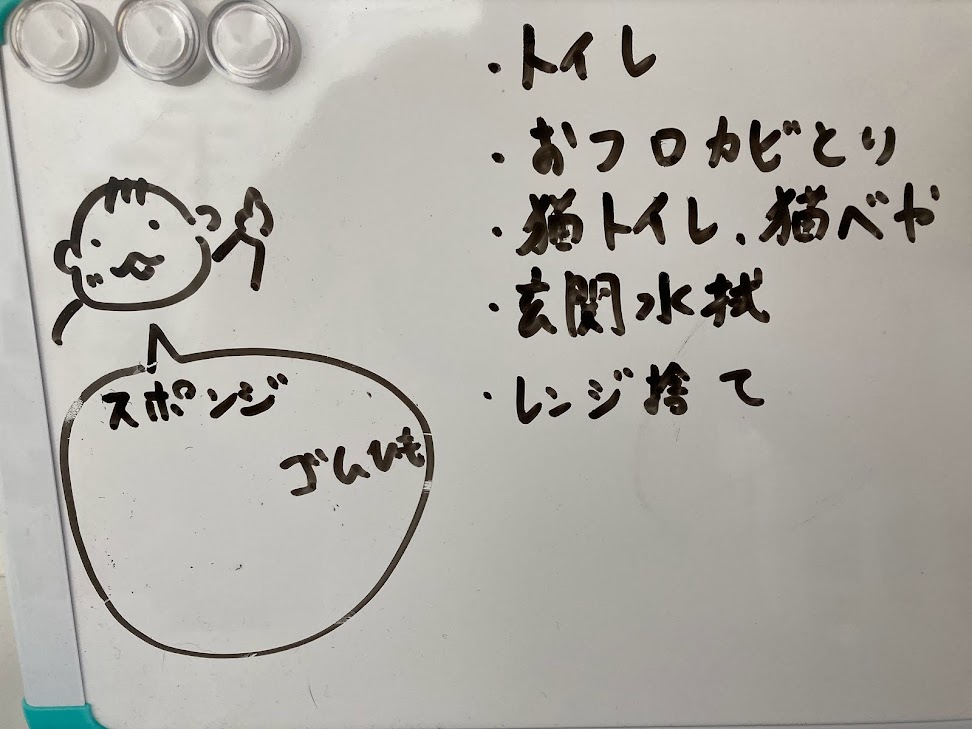 ・トイレ
・おフロカビとり
・猫トイレ、猫べや
・玄関水拭
・レンジ捨て
スポンジ
ゴムひも